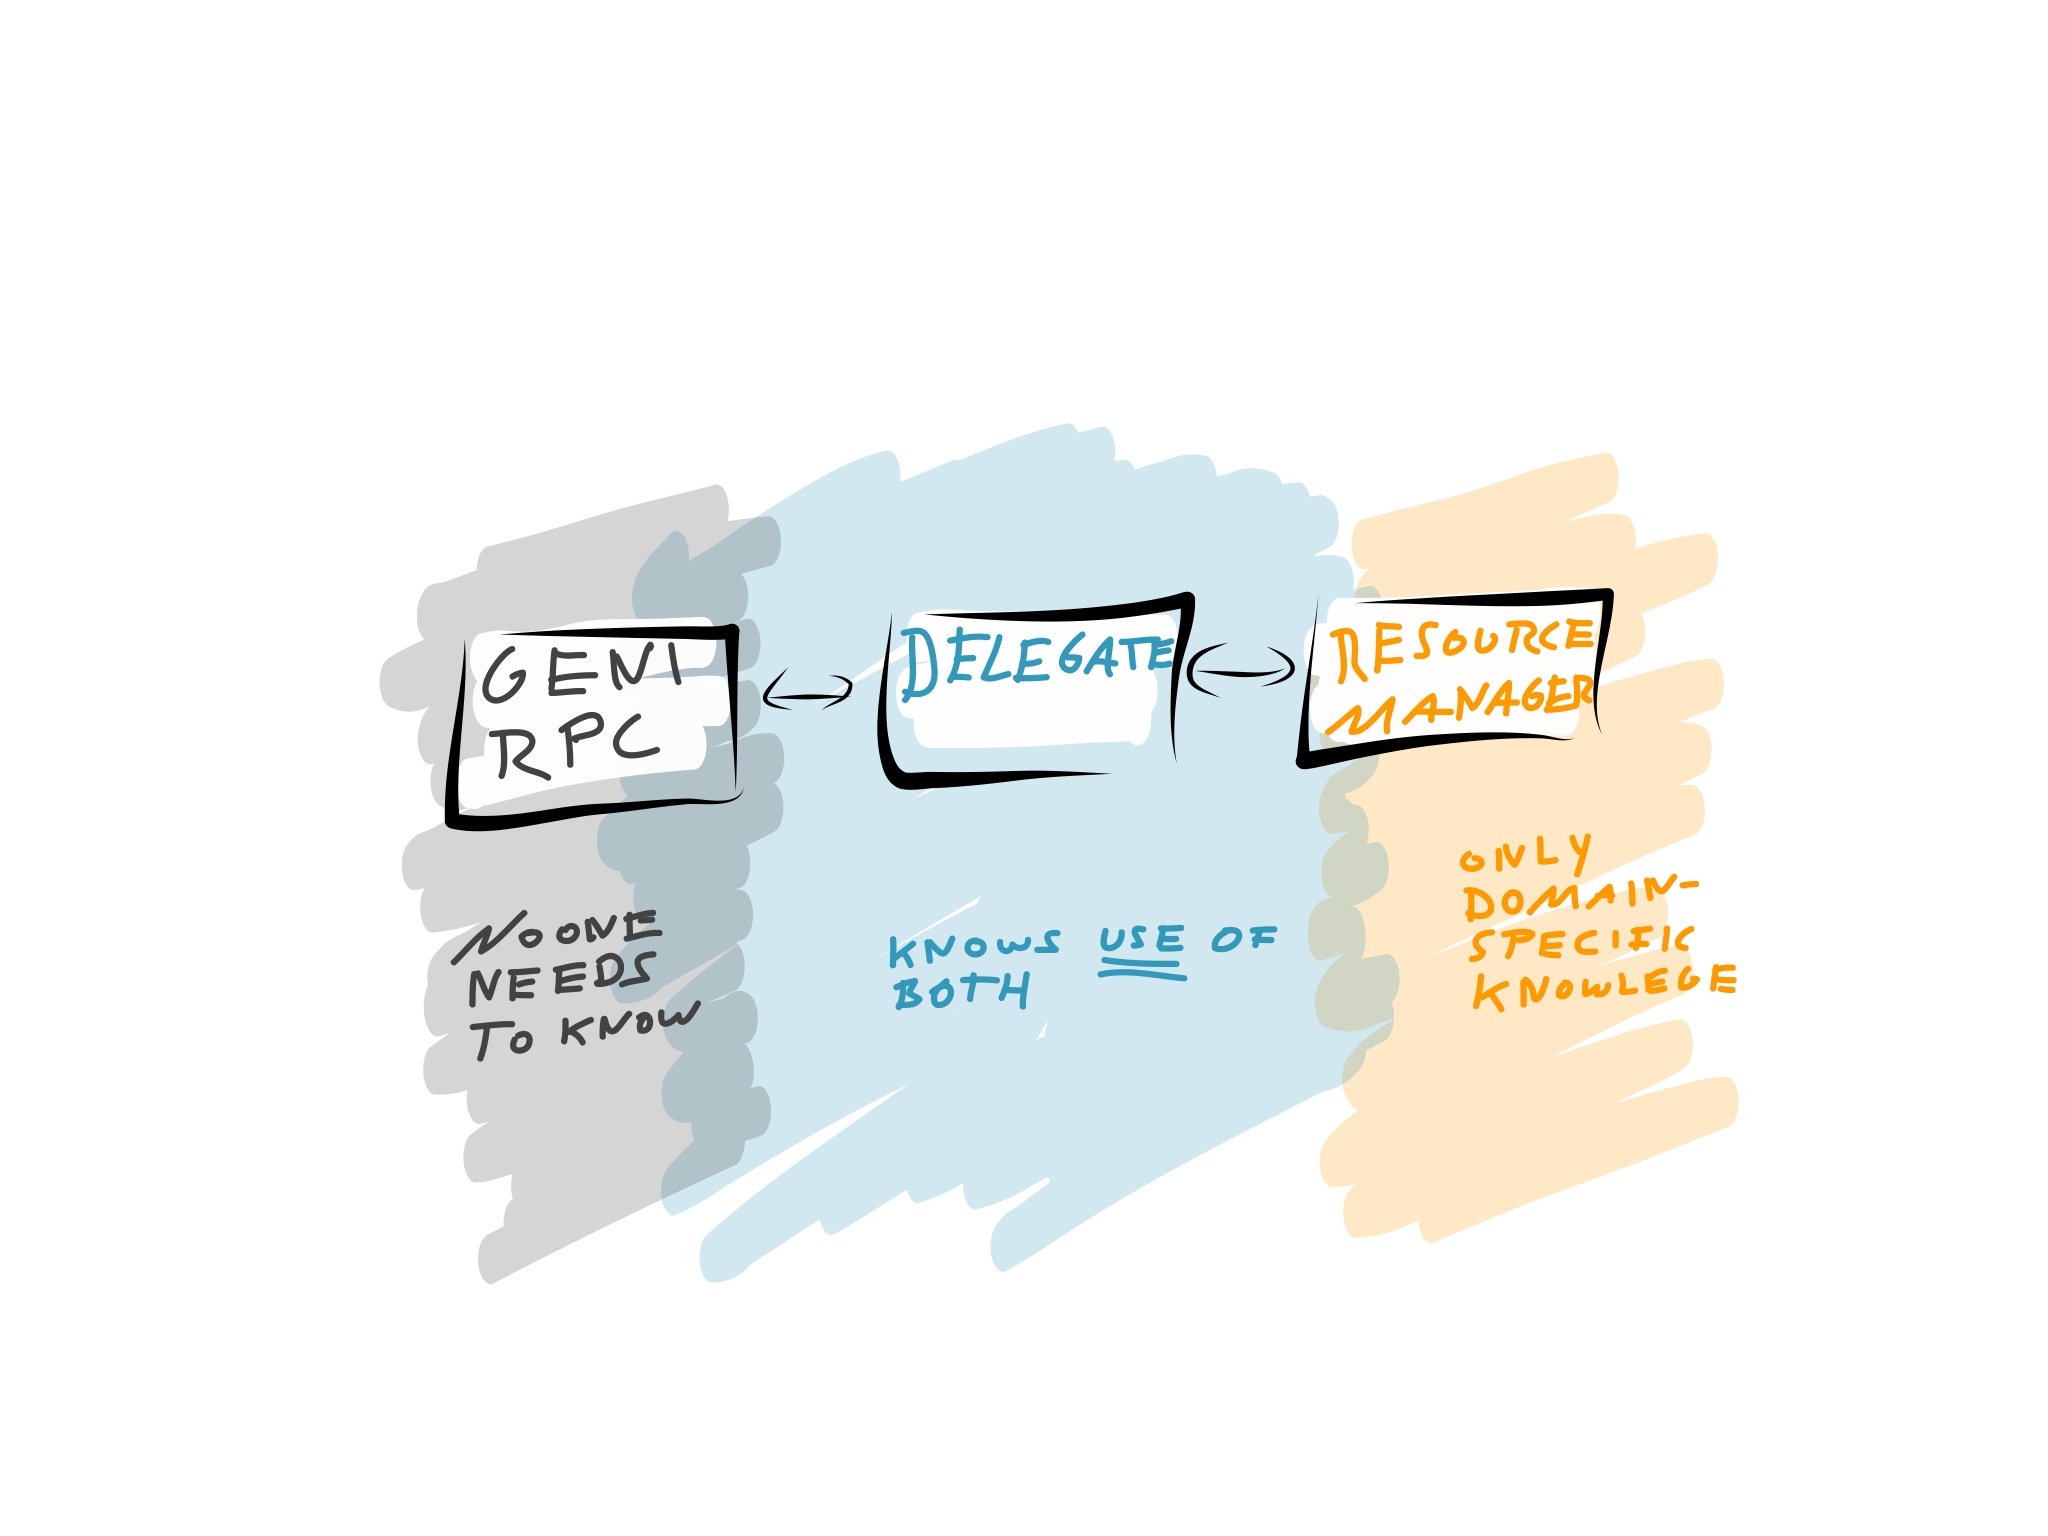 GENI
RPC
DELEGATE
RESOURCE
MANAGER
NO ONE
NEEDS
TO KNOW
KNOWS USE OF
BOTH
ONLY
DOMAIN-
SPECIFIC
KNOWLEGE